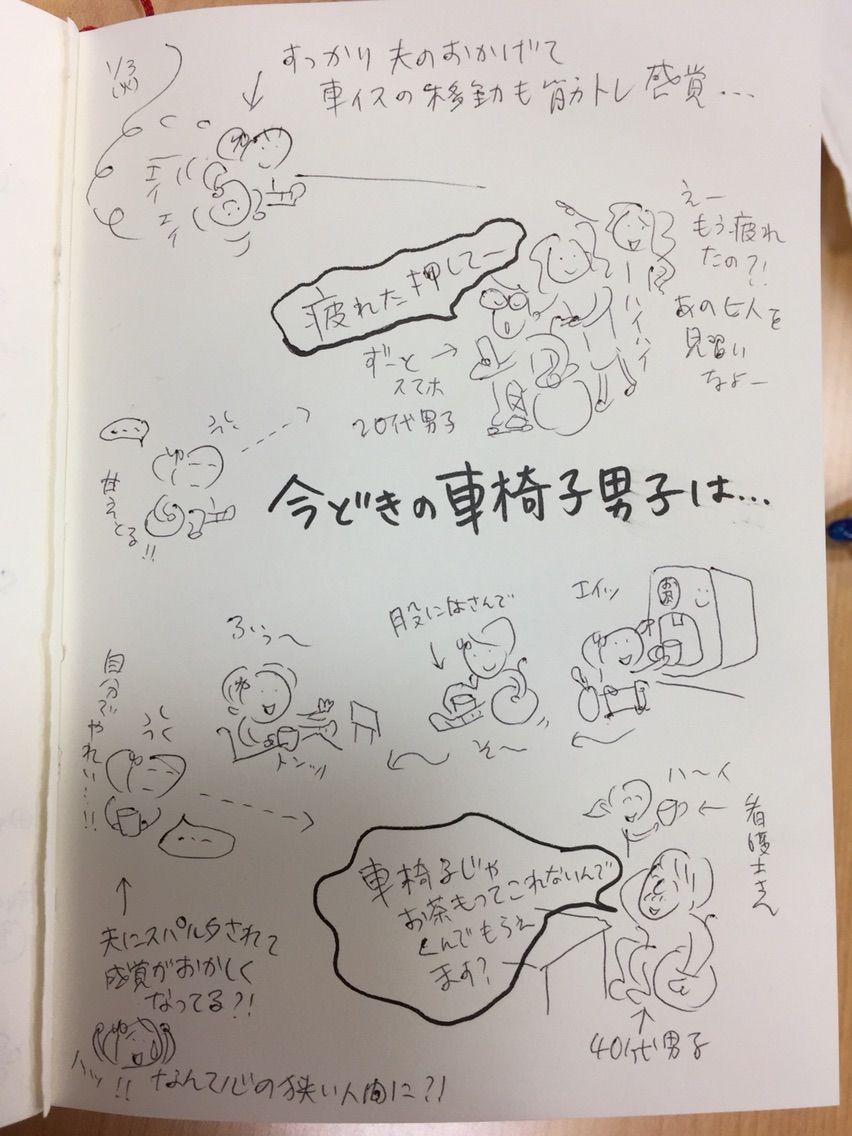 1/3
(火)
すっかり夫のおかげで
車イスの移動も筋トレ感覚…
エイ
エイ
疲れた押してー
えー
もう疲れ
たの?!
あの人を
見習い
なよー
ハイハイ
ずーと
スマホ
20代男子
…
甘えとる!!
今どきの車椅子男子は…
エイッ
お茶
股にはさんで
そ〜
ふぅ〜
トンッ
自分でやれい…!!
…
ハーイ
看護士さん
車椅子じゃ
お茶もってこれないんで
くんでもらえ
ます?
40代男子
夫にスパルタされて
感覚がおかしく
なってる?!
ハッ!!なんて心の狭い人間に?!